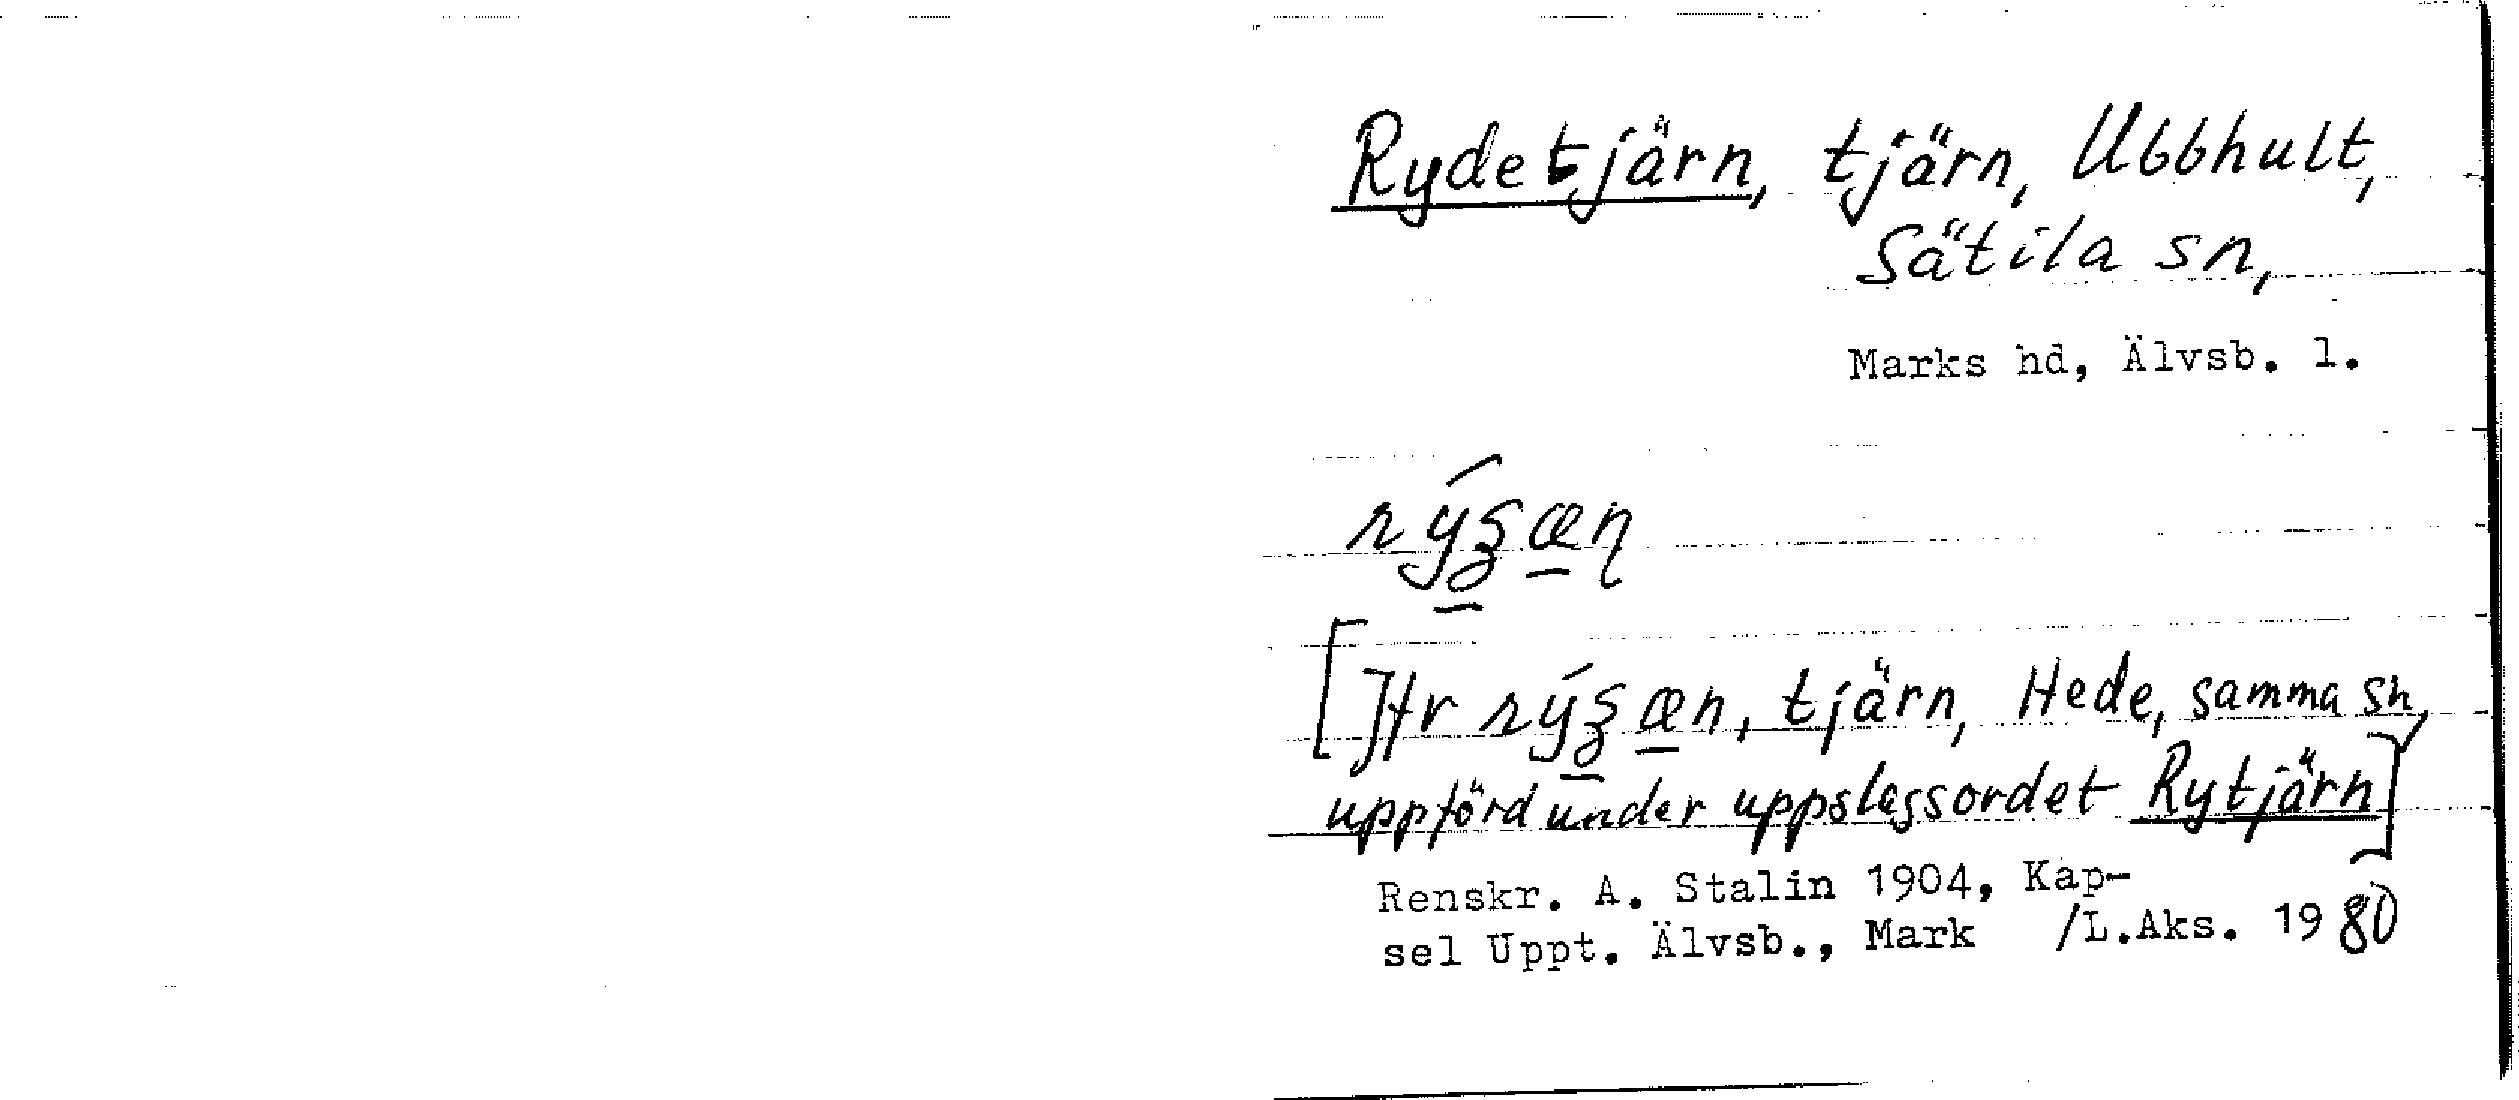 Rydetjärn, tjärn, Ubbhult,
Sätila sn,
Marks hd, Älvsb. l.
rýʒæn
[Jfr rýʒæn, tjärn, Hede, samma sn,
uppförd under uppslagsordet Rytjärn]
Renskr. A. Stalin 1904, Kap-
sel Uppt. Älvsb., Mark /L.Aks. 1980